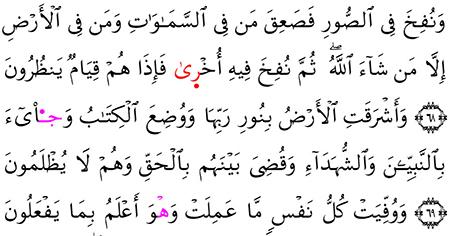 وَنُفِخَ فِى ٱلصُّورِ فَصَعِقَ مَن فِى ٱلسَّمَـٰوَٰتِ وَمَن فِى ٱلۡأَرۡضِ
إِلَّا مَن شَآءَ ٱللَّهُۖ ثُمَّ نُفِخَ فِيهِ أُخۡرٜىٰ فَإِذَا هُمۡ قِيَامٌ يَنظُرُونَ
﴿٦٨﴾ وَأَشۡرَقَتِ ٱلۡأَرۡضُ بِنُورِ رَبِّهَا وَوُضِعَ ٱلۡكِتَـٰبُ وَجِا۟ىٓءَ
بِٱلنَّبِيِّـۧنَ وَٱلشُّهَدَآءِ وَقُضِىَ بَيۡنَهُم بِٱلۡحَقِّ وَهُمۡ لَا يُظۡلَمُونَ
﴿٦٩﴾ وَوُفِّيَتۡ كُلُّ نَفۡسٍ مَّا عَمِلَتۡ وَهۡوَ أَعۡلَمُ بِمَا يَفۡعَلُونَ